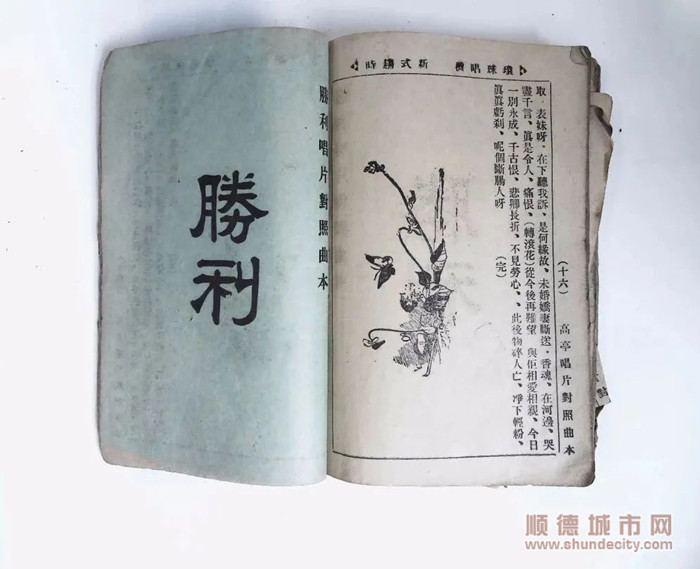 環球唱機 新式趨時
（十六） 高亭唱片對照曲本
取、表妹呀、在下聽我訴、是何緣故、未婚嬌妻斷送、香魂、在河邊、哭
盡千言、眞是令人、痛恨、（轉滾花）從今後再難望 與佢相愛相親、今日
一別永成、千古恨、悲卿長折、不見勞心、、此後物碎人亡、凈下輕粉、
眞眞虧刹、呢個斷腸人呀 （完）
勝利唱片對照曲本
勝利
對
顺德城市网
www.shundecity.com